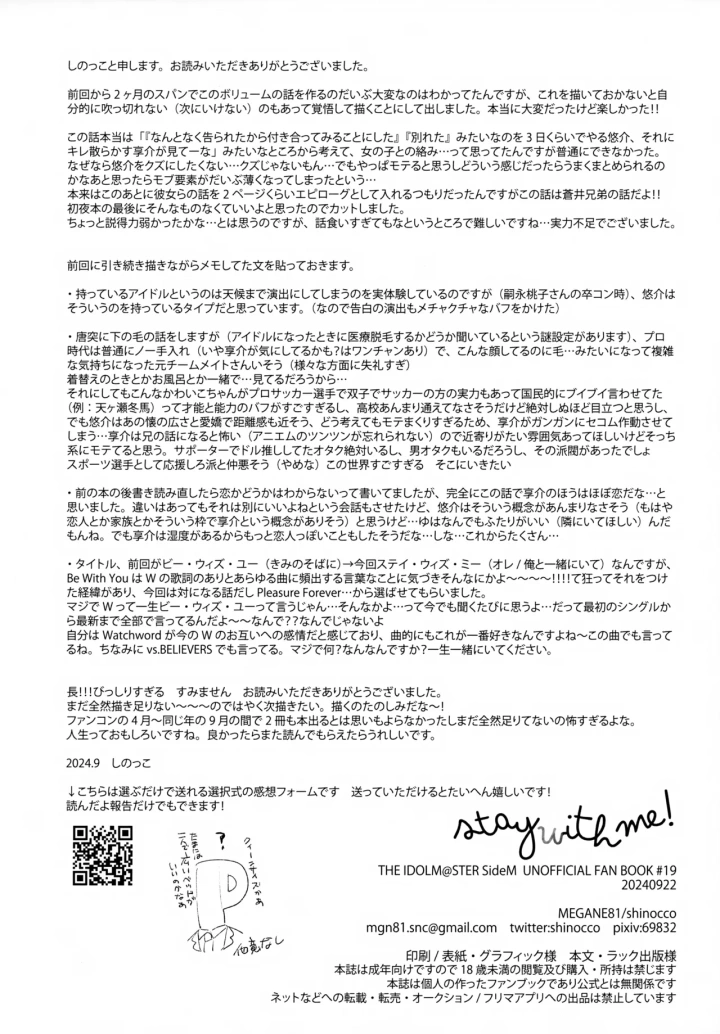 しのっこと申します。お読みいただきありがとうございました。
前回から2ヶ月のスパンでこのボリュームの話を作るのだいぶ大変なのはわかってたんですが、これを描いておかないと自
分的に吹っ切れない（次にいけない）のもあって覚悟して描くことにして出しました。本当に大変だったけど楽しかった!!
この話本当は「『なんとなく告られたから付き合ってみることにした』『別れた』みたいなのを3日くらいでやる悠介、それに
キレ散らかす享介が見てーな」みたいなところから考えて、女の子との絡み…って思ってたんですが普通にできなかった。
なぜなら悠介をクズにしたくない…クズじゃないもん…でもやっぱモテると思うしどういう感じだったらうまくまとめられるの
かなあと思ったらモブ要素がだいぶ薄くなってしまったという…
本来はこのあとに彼女らの話を2ページくらいエピローグとして入れるつもりだったんですがこの話は蒼井兄弟の話だよ!!
初夜本の最後にそんなものなくていいよと思ったのでカットしました。
ちょっと説得力弱かったかな…とは思うのですが、話食いすぎてもなというところで難しいですね…実力不足でございました。
前回に引き続き描きながらメモしてた文を貼っておきます。
・持っているアイドルというのは天候まで演出にしてしまうのを実体験しているのですが（嗣永桃子さんの卒コン時）、悠介は
そういうのを持っているタイプだと思っています。（なので告白の演出もメチャクチャなバフをかけた）
・唐突に下の毛の話をしますが（アイドルになったときに医療脱毛するかどうか聞いているという謎設定があります）、プロ
時代は普通にノー手入れ（いや享介が気にしてるかも?はワンチャンあり）で、こんな顔してるのに毛…みたいになって複雑
な気持ちになった元チームメイトさんいそう（様々な方面に失礼すぎ）
着替えのときとかお風呂とか一緒で…見てるだろうから…
それにしてもこんなかわいこちゃんがプロサッカー選手で双子でサッカーの方の実力もあって国民的にブイブイ言わせてた
（例：天ヶ瀬冬馬）って才能と能力のバフがすごすぎるし、高校あんまり通えてなさそうだけど絶対しぬほど目立つと思うし、
でも悠介はあの懐の広さと愛嬌で距離感も近そう、どう考えてもモテまくりすぎるため、享介がガンガンにセコム作動させて
しまう…享介は兄の話になると怖い（アニエムのツンツンが忘れられない）ので近寄りがたい雰囲気あってほしいけどそっち
系にモテてると思う。サポーターでドル推ししてたオタク絶対いるし、男オタクもいるだろうし、その派閥があったでしょ
スポーツ選手として応援しろ派と仲悪そう（やめな）この世界すごすぎる　そこにいきたい
・前の本の後書き読み直したら恋かどうかはわからないって書いてましたが、完全にこの話で享介のほうはほぼ恋だな…と
思いました。違いはあってもそれは別にいいよねという会話もさせたけど、悠介はそういう概念があんまりなさそう（もはや
恋人とか家族とかそういう枠で享介という概念がありそう）と思うけど…ゆはなんでもふたりがいい（隣にいてほしい）んだ
もんね。でも享介は湿度があるからもっと恋人っぽいこともしたそうだな…しな…これからたくさん…
・タイトル、前回がビー・ウィズ・ユー（きみのそばに）→今回ステイ・ウィズ・ミー（オレ / 俺と一緒にいて）なんですが、
Be With You は W の歌詞のありとあらゆる曲に頻出する言葉なことに気づきそんなにかよ〜〜〜〜!!!!て狂ってそれをつけ
た経緯があり、今回は対になる話だし Pleasure Forever…から選ばせてもらいました。
マジで W って一生ビー・ウィズ・ユーって言うじゃん…そんなかよ…って今でも聞くたびに思うよ…だって最初のシングルか
ら最新まで全部で言ってるんだよ〜〜なんで??なんでじゃないよ
自分は Watchword が今の W のお互いへの感情だと感じており、曲的にもこれが一番好きなんですよね〜この曲でも言って
るね。ちなみに vs.BELIEVERS でも言ってる。マジで何?なんなんですか?一生一緒にいてください。
長!!!びっしりすぎる　すみません　お読みいただきありがとうございました。
まだ全然描き足りない〜〜〜のではやく次描きたい。描くのたのしみだな〜!
ファンコンの4月〜同じ年の9月の間で2冊も本出るとは思いもよらなかったしまだ全然足りてないの怖すぎるよな。
人生っておもしろいですね。良かったらまた読んでもらえたらうれしいです。
2024.9　しのっこ
↓こちらは選ぶだけで送れる選択式の感想フォームです　送っていただけるとたいへん嬉しいです!
読んだよ報告だけでもできます!
stay with me!
?
P
THE IDOLM@STER SideM UNOFFICIAL FAN BOOK #19
20240922
MEGANE81/shinocco
mgn81.snc@gmail.com　twitter:shinocco　pixiv:69832
印刷 / 表紙・グラフィック様　本文・ラック出版様
本誌は成年向けですので18歳未満の閲覧及び購入・所持は禁じます
本誌は個人の作ったファンブックであり公式とは無関係です
ネットなどへの転載・転売・オークション / フリマアプリへの出品は禁止しています